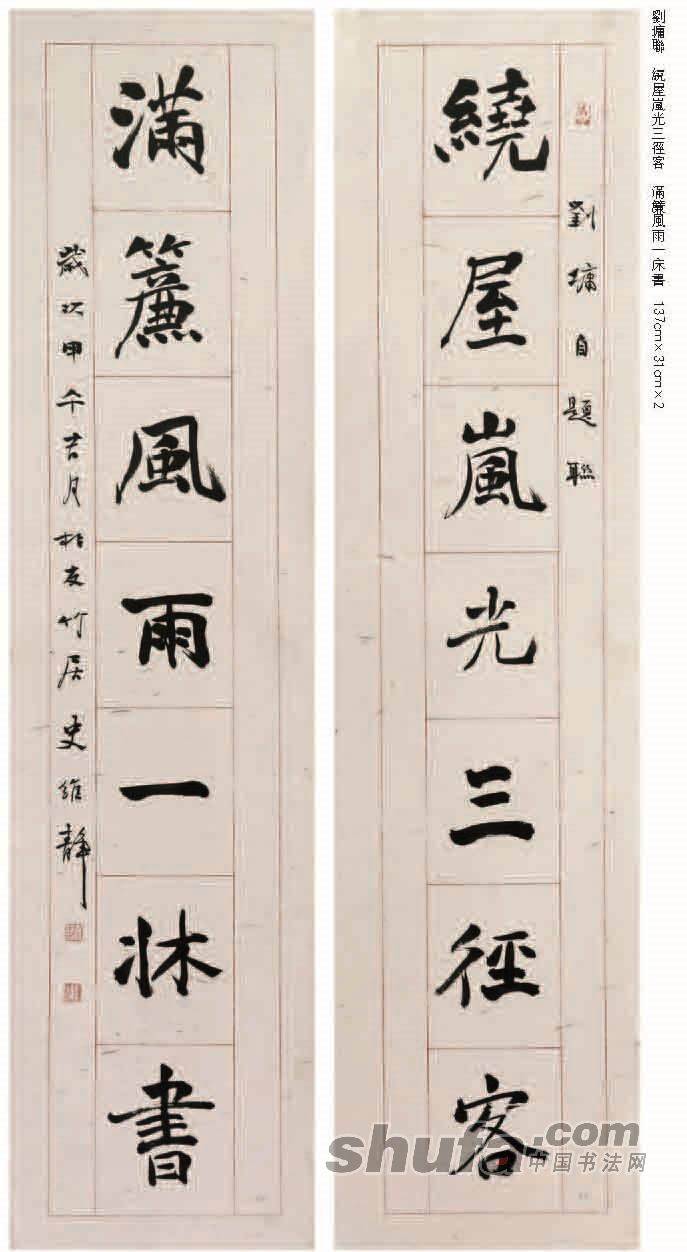 劉墉聯 繞屋嵐光三徑客 滿簾風雨一床書 137cm×31cm×2
劉墉自題聯
繞屋嵐光三徑客
滿簾風雨一牀書
歲次甲午吉月於友竹居史維靜
shufa.com
中国书法网